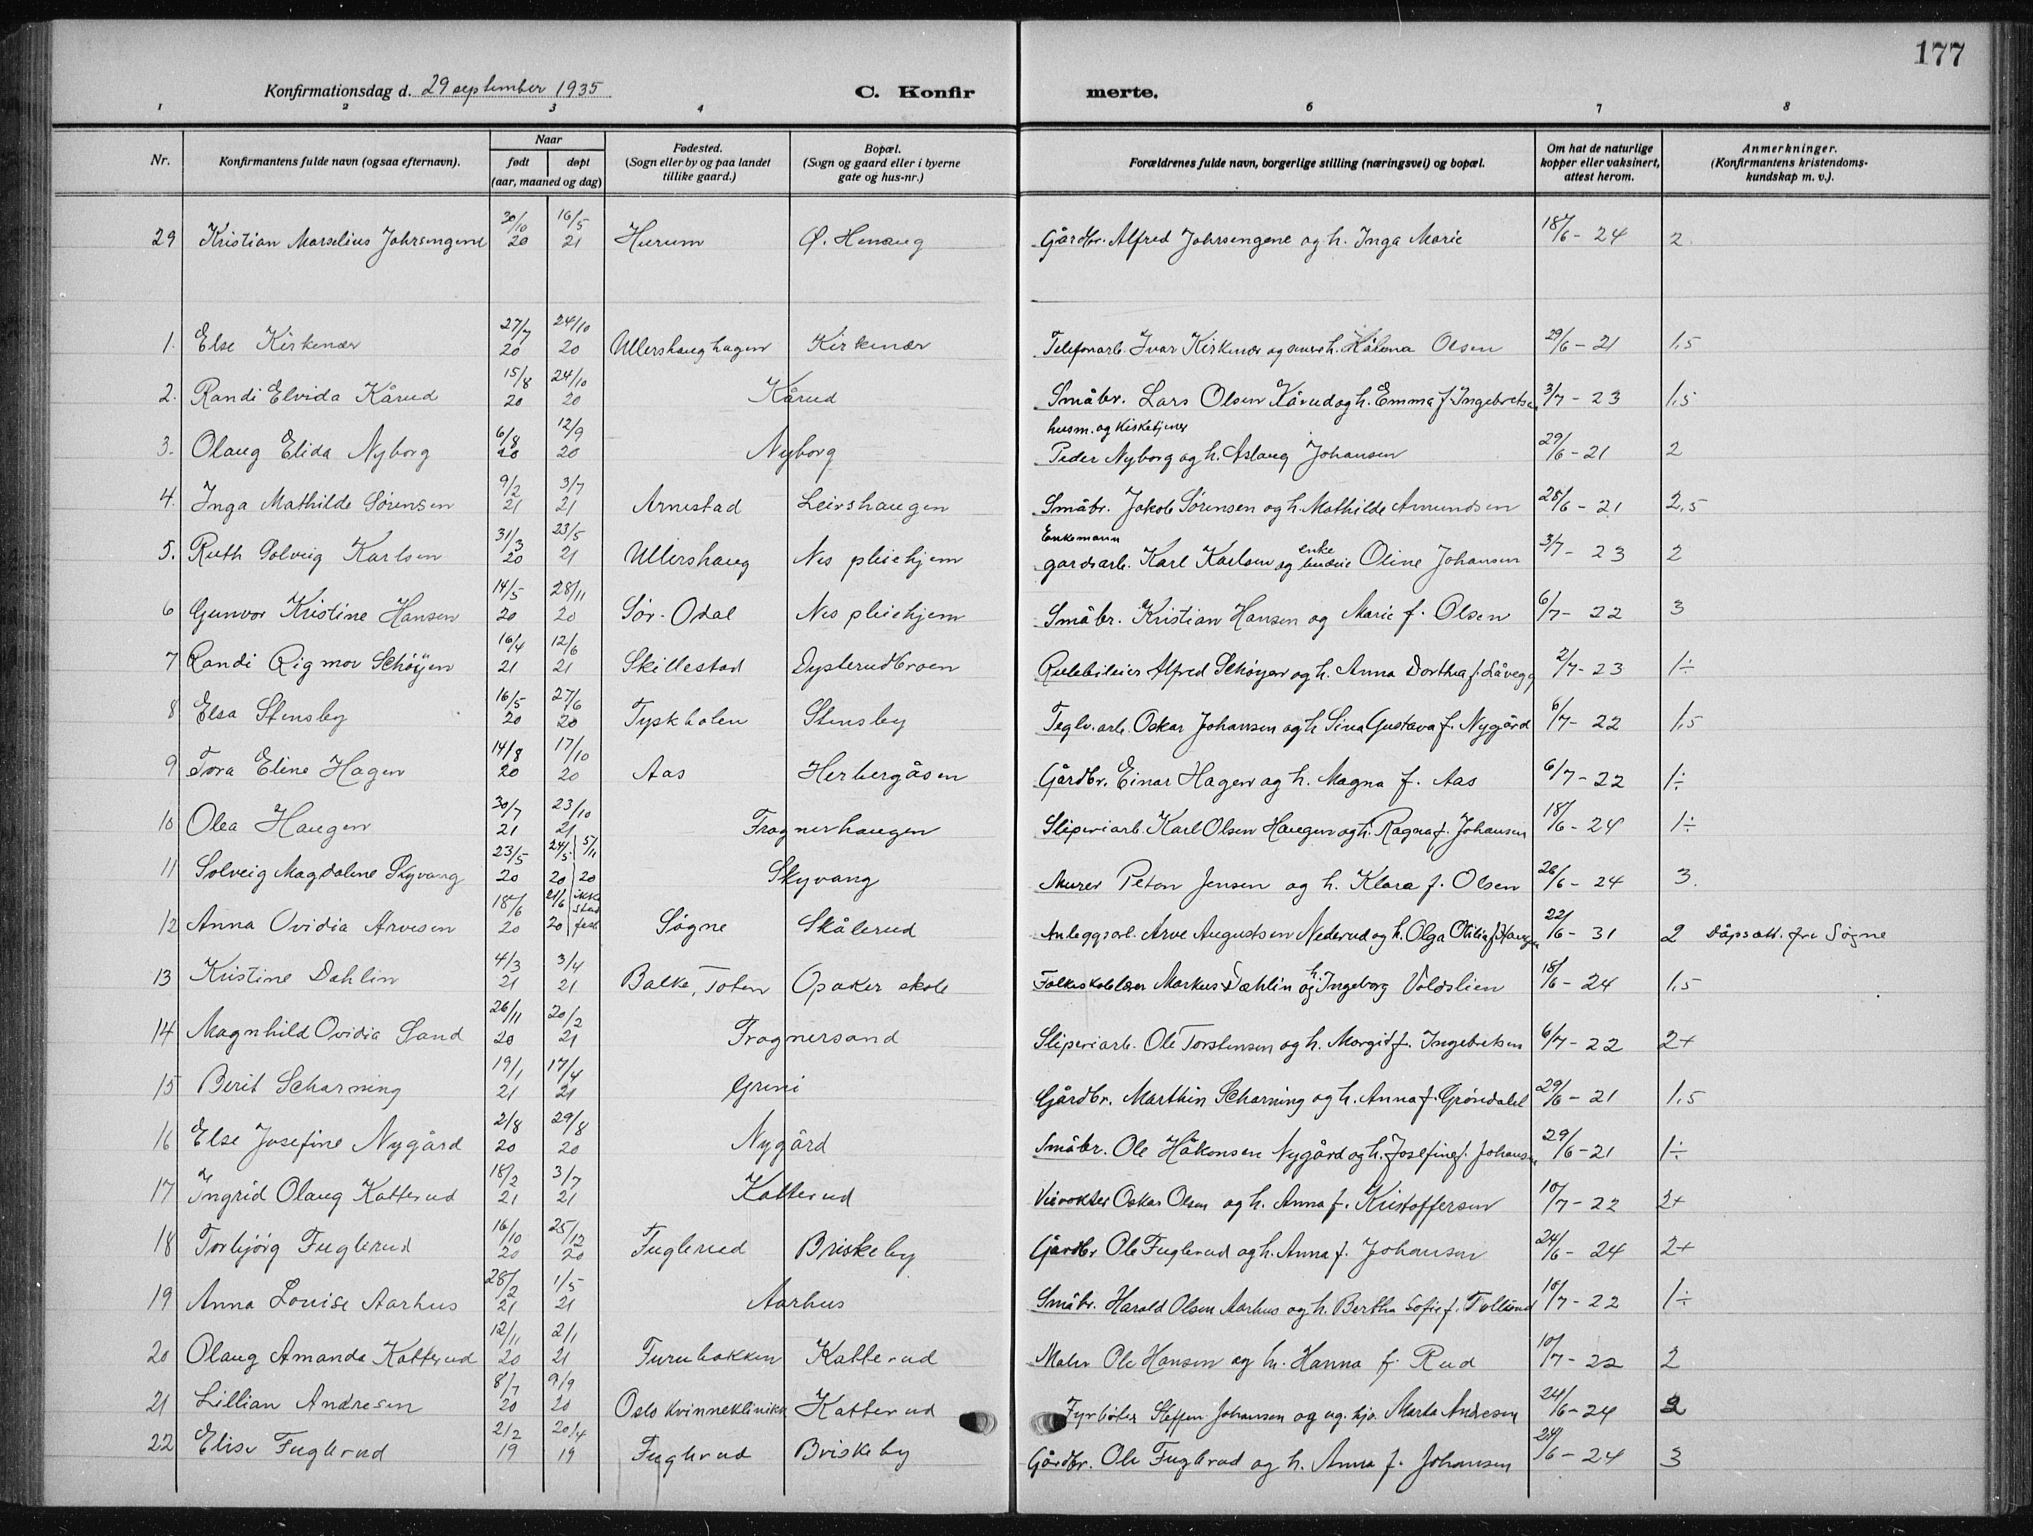 177
Konfirmationsdag d. 29 september 1935 C. Konfirmerte.
1 2 3 4 6 7 8
Nr. Konfirmantens fulde navn (ogsaa efternavn). Naar født døpt (aar, maaned og dag) Fødested. (Sogn eller by og paa landet tillike gaard.) Bopæl. (Sogn og gaard eller i byerne gate og hus-nr.) Forældrenes fulde navn, borgerlige stilling (næringsvei) og bopæl. Om hat de naturlige kopper eller vaksinert, attest herom. Anmerkninger. (Konfirmantens kristendomskundskap m. v.).
29 Kristian Marselius Johrsengene 30/10 20 16/5 21 Hurum Ø. Henaug Gårdbr. Alfred Johrsengene og h. Inga Marie 18/6 - 24 2
1. Else Kirkenær 27/7 20 24/10 20 Ullershaughagen Kirkenær Telefonarb. Ivar Kirkenær og h. Olsen 29/6 - 21 1,5
2. Randi Elvida Kårud 15/8 20 24/10 20 Kårud Småbr. Lars Olsen Kårud og h. Emma f. Ingebretsen 3/7 - 23 1,5
3. Olaug Elida Nyborg 6/8 20 12/9 20 Nyborg husm. og kirketjener Peder Nyborg og h. Aslaug Johansen 29/6 - 21 2
4. Inga Mathilde Sørensen 9/2 21 3/7 21 Arnestad Leirshaugen Småbr. Jakob Sørensen og h. Mathilde Amundsen 28/6 - 21 2,5
5. Ruth Solveig Karlsen 31/3 20 23/5 21 Ullershaug Nes pleiehjem Enkemann gardsarb. Karl Karlsen og enke budeie Oline Johansen 3/7 - 23 2
6 Gunvor Kristine Hansen 14/5 20 28/11 20 Sør-Odal Nes pleiehjem Småbr. Kristian Hansen og Marie f. Olsen 6/7 - 22 3
7 Randi Rigmor Schøyen 16/4 21 12/6 21 Skillestad Dysterudbroen Rutebileier Alfred Schøyen og h. Anna Dorthea f. Låvegg 2/7 - 23 1÷
8 Elsa Stensby 16/5 20 27/6 20 Tyskholen Stensby Teglv.arb. Oskar Johansen og h. Sina Gustava f. Nygård 6/7 - 22 1,5
9 Tora Eline Hagen 14/8 20 17/10 20 Aas Herbergåsen Gårdbr. Einar Hagen og h. Magna f. Aas 6/7 - 22 1÷
10 Olea Haugen 30/7 21 23/10 21 Fragnerhaugen Sliperiarb. Karl Olsen Haugen og h. Ragna f. Johansen 18/6 - 24 1÷
11 Solveig Magdalene Skyvang 23/5 20 24/5 20 5/11 20 Skyvang Murer Peton Jensen og h. Klara f. Olsen 26/6 - 24 3.
12 Anna Ovidia Arvesen 18/6 20 21/6 20 ikke stadfest Søgne Skålerud Anleggsarb. Arve Augustsen Nederud og h. Olga Otilia f. Haugen 22/6 - 31 2 Dåpsatt. fra Søgne
13 Kristine Dahlin 4/3 21 3/4 21 Balke, Toten Opaker skole Folkeskolelærer Markus Dæhlin og h. Ingeborg Voldslien 18/6 - 24 1,5
14 Magnhild Ovidia Sand 26/11 20 20/2 21 Fragnersand Sliperiarb. Ole Torstensen og h. Margit f. Ingebretsen 6/7 - 22 2+
15 Berit Scharning 19/1 21 17/4 21 Grini Gårdbr. Marthin Scharning og h. Anna f. Grøndahl 29/6 - 21 1,5
16 Else Josefine Nygård 2/8 20 29/8 20 Nygård Småbr. Ole Håkonsen Nygård og h. Josefine f. Johansen 29/6 - 21 1÷
17 Ingrid Olaug Katterud 18/2 21 3/7 21 Katterud Veivokter Oskar Olsen og h. Anna f. Kristoffersen 10/7 - 22 2+
18 Torbjørg Fuglerud 16/10 20 25/12 20 Fuglerud Briskeby Gårdbr Ole Fuglerud og h. Anna f. Johansen 24/6 - 24 2+
19 Anna Louise Aarhus 28/2 21 1/5 21 Aarhus Småbr. Harald Olsen Aarhus og h. Bertha Sofie f. Tollund 10/7 - 22 1÷
20 Olaug Amanda Katterud 12/11 20 2/1 21 Furubakken Katterud Maler Ole Hansen og h. Hanna f. Rud 10/7 - 22 2
21 Lillian Andresen 8/7 20 9/9 20 Oslo kvinneklinikk Katterud Fyrbøter Steffen Johansen og ug. hjo. Marta Andresen 24/6 - 24 2
22 Elise Fuglerud 2/2 19 20/4 19 Fuglerud Briskeby Gårdbr. Ole Fuglerud og h. Anna f. Johansen 24/6 - 24 3